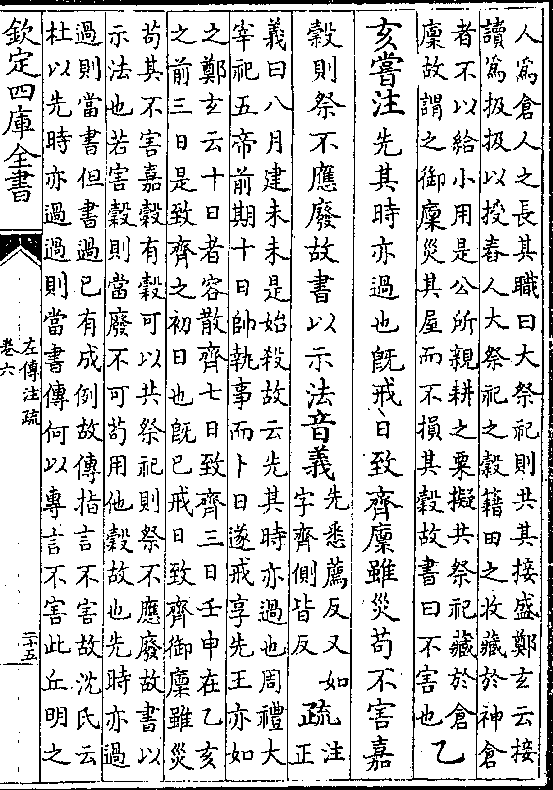 人爲倉人之長其職曰大祭祀則共其接盛鄭玄云接
讀爲扱扱以授舂人大祭祀之穀籍田之收藏於神倉
者不以給小用是公所親耕之粟擬共祭祀藏於倉
廩故謂之御廩災其屋而不損其穀故書曰不害也 乙
亥嘗注先其時亦過也旣戒日致齊廩雖災苟不害嘉
穀則祭不應廢故書以示法音義先悉薦反又如
字齊側皆反
疏注
正
義曰八月建未未是始殺故云先其時亦過也周禮大
宰祀五帝前期十日帥執事而卜日遂戒享先王亦如
之鄭玄云十日者容散齊七日致齊三日壬申在乙亥
之前三日是致齊之初日也旣巳戒日致齊御廩雖災
苟其不害嘉穀有穀可以共祭祀則祭不應廢故書以
示法也若害穀則當廢不可苟用他穀故也先時亦過
過則當書但書過已有成例故傳指言不害故沈氏云
杜以先時亦過過則當書傳何以專言不害此丘明之
欽定四庫全書
左傳注疏
卷六
二十五